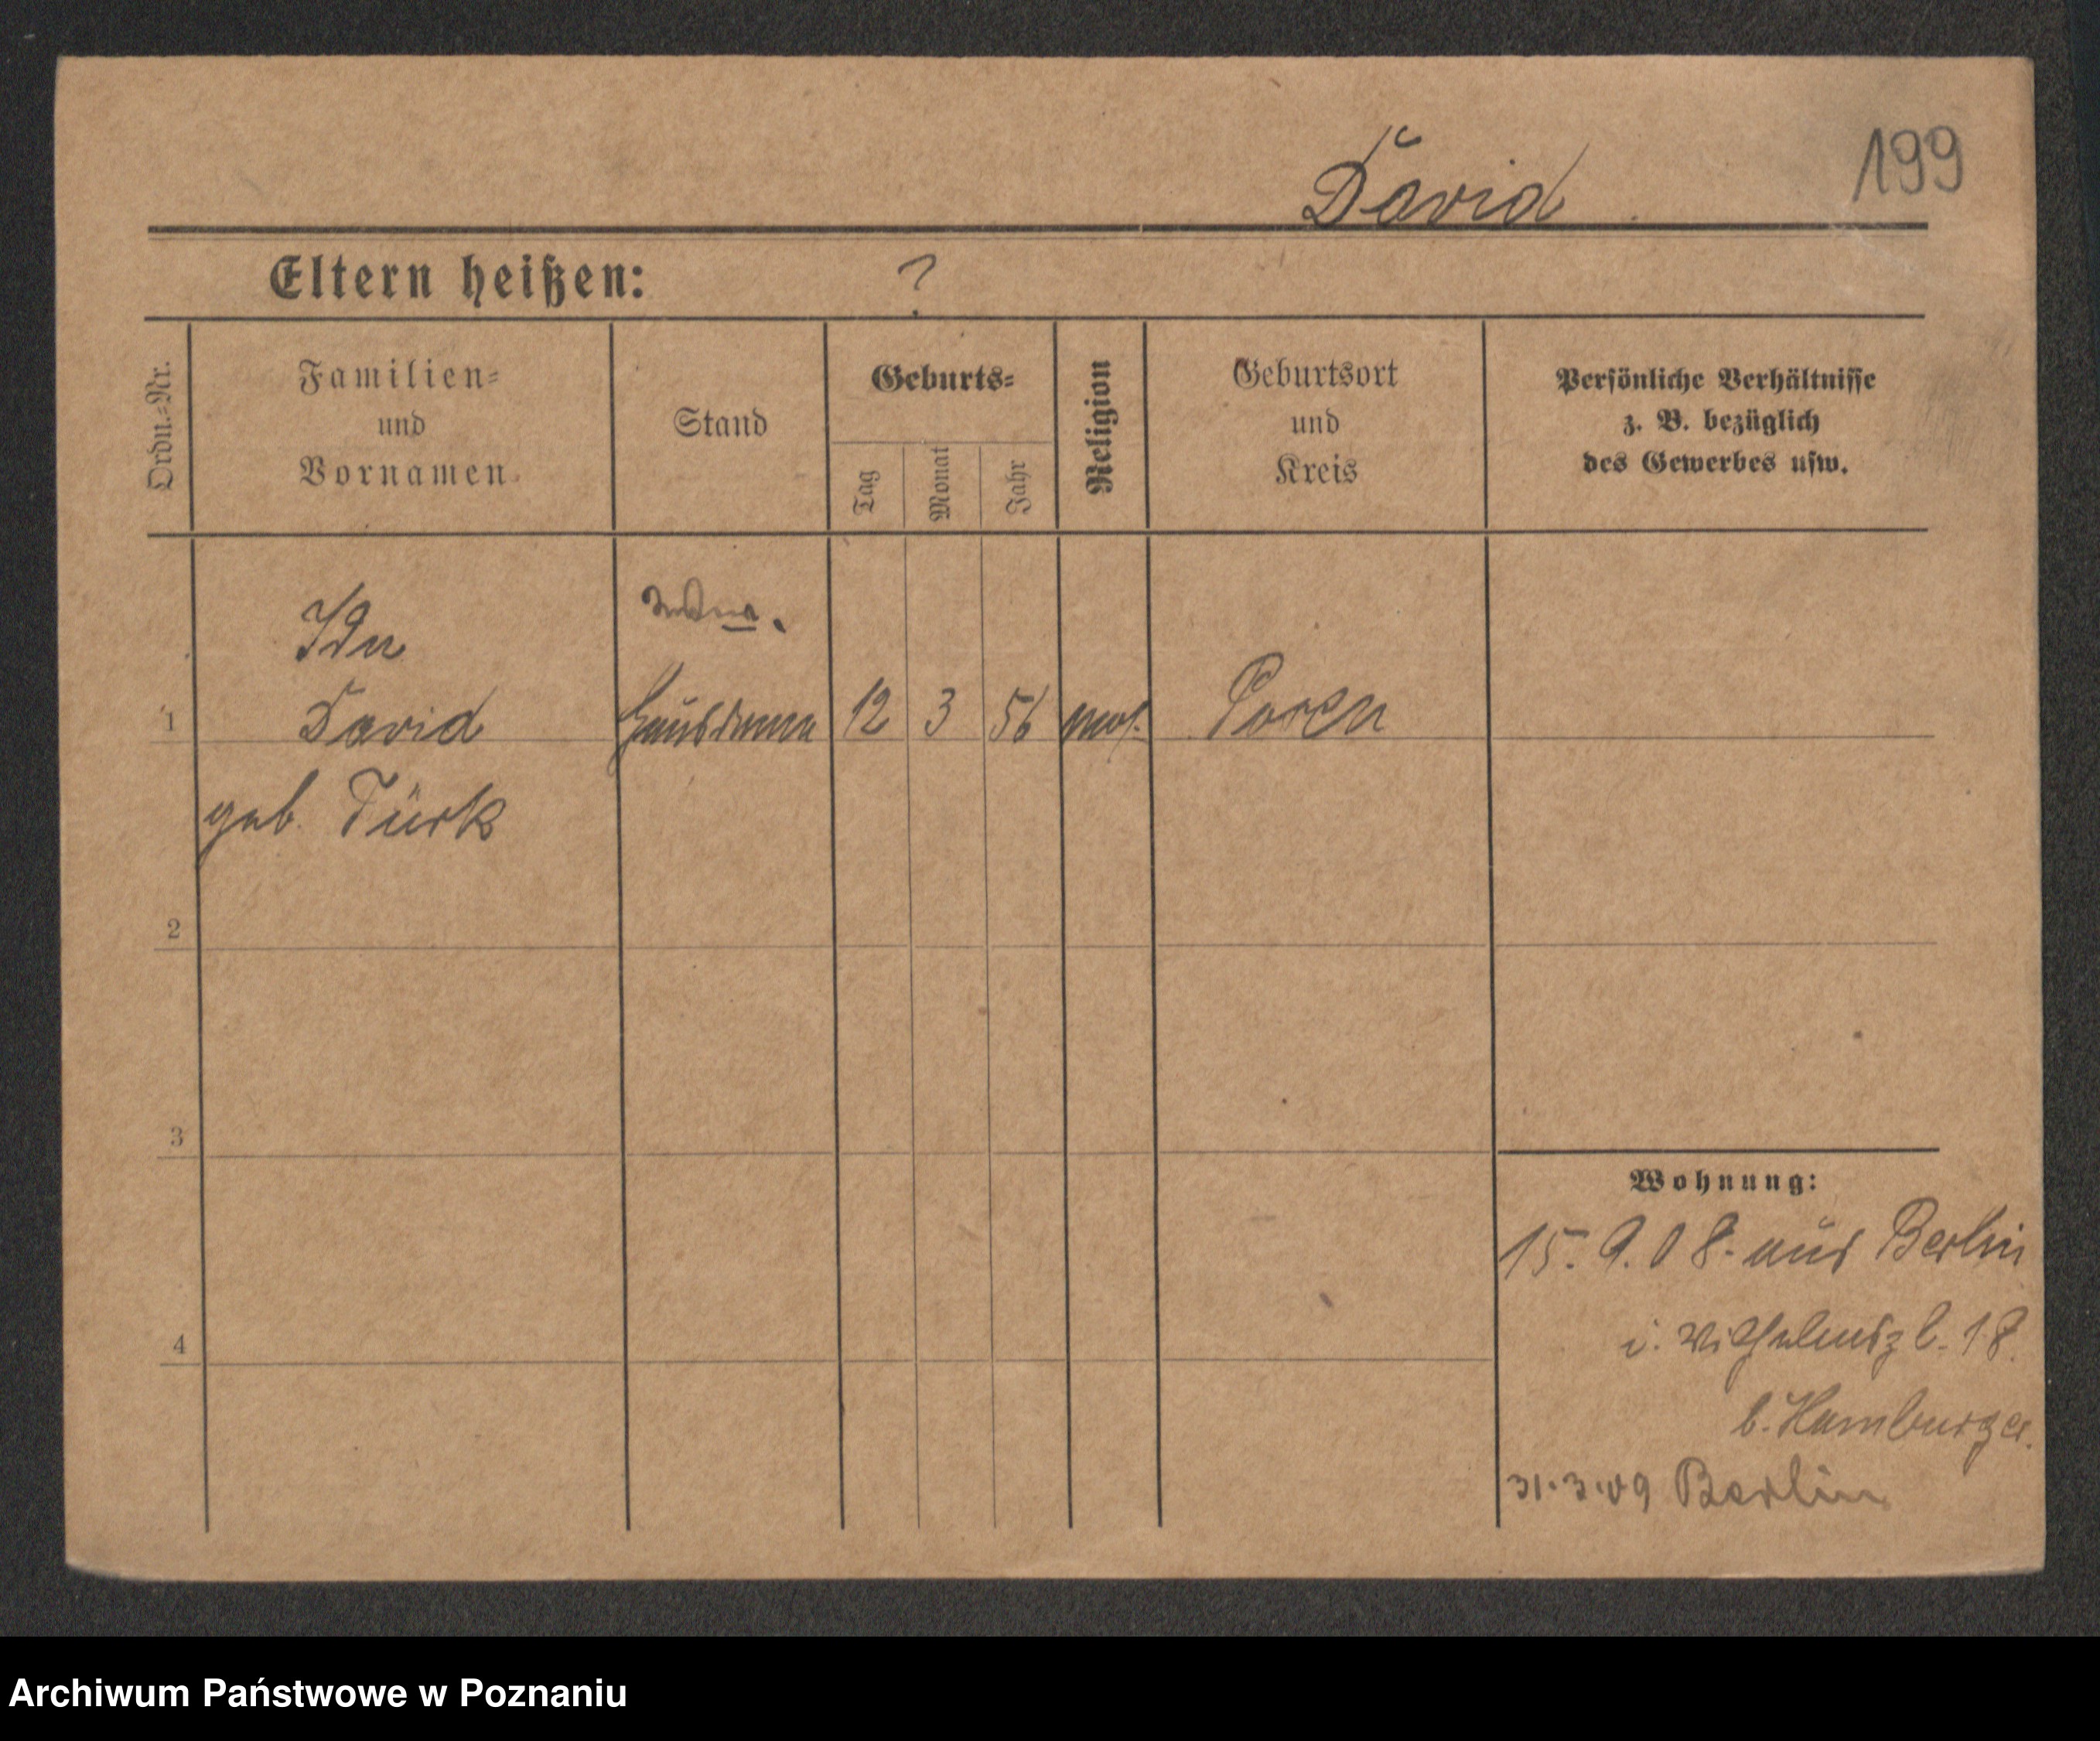 199
David
Eltern heißen: ?
Ordn.-Nr.
Familien-
und
Vornamen
Stand
Geburts-
Tag
Monat
Jahr
Religion
Geburtsort
und
Kreis
Persönliche Verhältnisse
z. B. bezüglich
des Gewerbes usw.
Ida
1 David Hausdame 12 3 56 mos. Posen
geb. Türk
2
3
4
Wohnung:
15.9.08. aus Berlin
i. Wilhelmspl. 18.
b. Hamburger.
31.3.09 Berlin
Archiwum Państwowe w Poznaniu